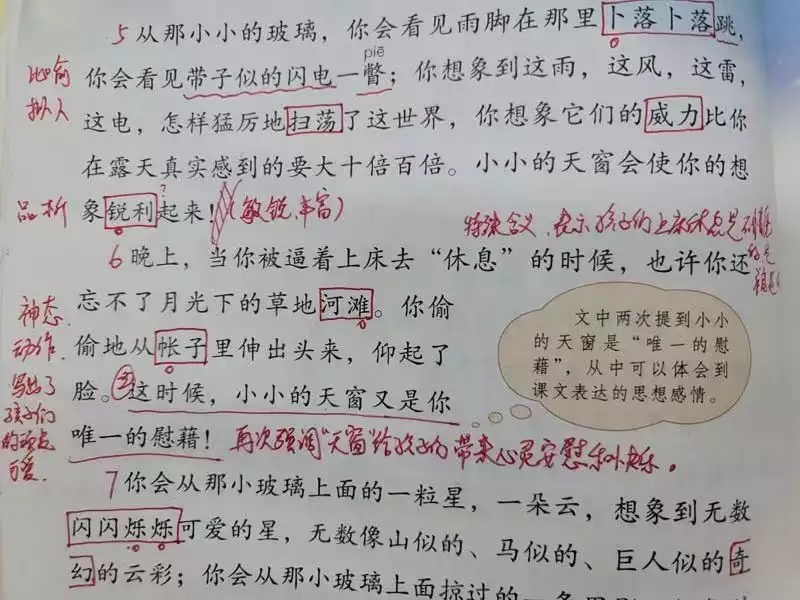 5 从那小小的玻璃，你会看见雨脚在那里卜落卜落跳，
piē
比喻
拟人
你会看见带子似的闪电一瞥；你想象到这雨，这风，这雷，
这电，怎样猛厉地扫荡了这世界，你想象它们的威力比你
在露天真实感到的要大十倍百倍。小小的天窗会使你的想
品析
象锐利起来！（敏锐,丰富）
特殊含义，表示孩子们上床休息是
6 晚上，当你被逼着上床去“休息”的时候，也许你还
忘不了月光下的草地河滩。你偷
偷地从帐子里伸出头来，仰起了
脸。这时候，小小的天窗又是你
唯一的慰藉！
神态
动作
写出了
孩子们
的
可爱.
文中两次提到小小
的天窗是“唯一的慰
藉”，从中可以体会到
课文表达的思想感情。
再次强调“天窗”给孩子们带来心灵安慰和快乐。
7 你会从那小玻璃上面的一粒星，一朵云，想象到无数
闪闪烁烁可爱的星，无数像山似的、马似的、巨人似的奇
幻的云彩；你会从那小玻璃上面掠过的一条黑影